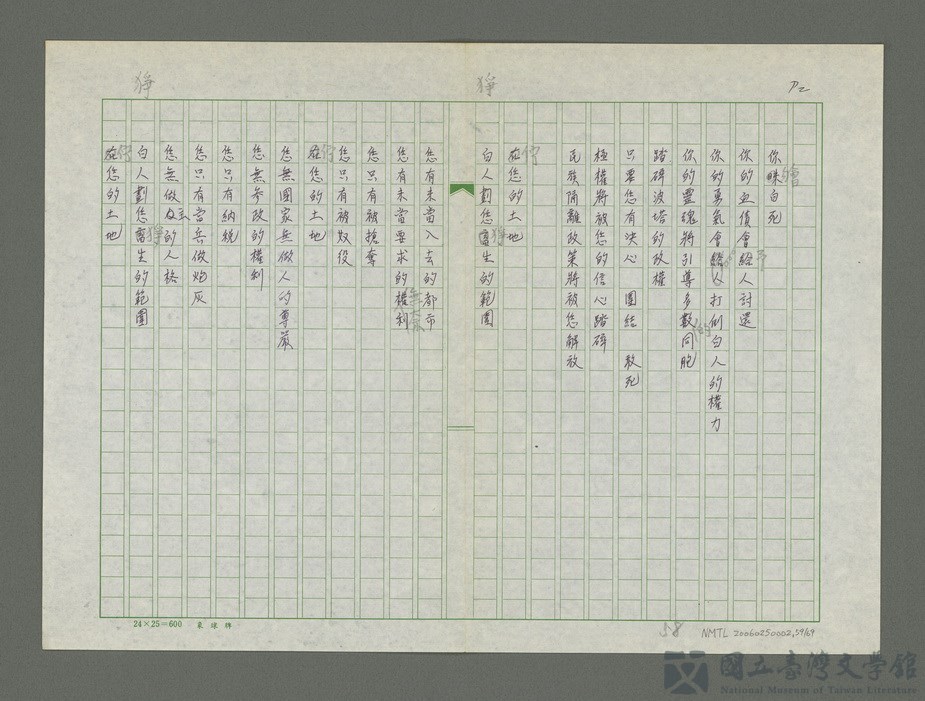 P2
你昧白死
你的血債會給人討還
你的勇氣會給人打倒白人的權力
你的靈魂將引導多數同胞
踏碎波塔的政權
只要您有決心 團結 敎死
極權將被您的信心踏碎
民族隔離政策將被您解放
在您的土地
白人劃您畜生的範圍
您有未當入去的都市
您有未當要求的權利
您只有被搶奪
您只有被奴役
在您的土地
您無國家無做人的尊嚴
您無參政的權利
您只有納稅
您只有當兵做炮灰
您無做的人格
白人劃您畜生的範圍
在您的土地
24×25=600
58
NMTL 20060250002,59/69
國立臺灣文學館
National Museum of Taiwan Literature